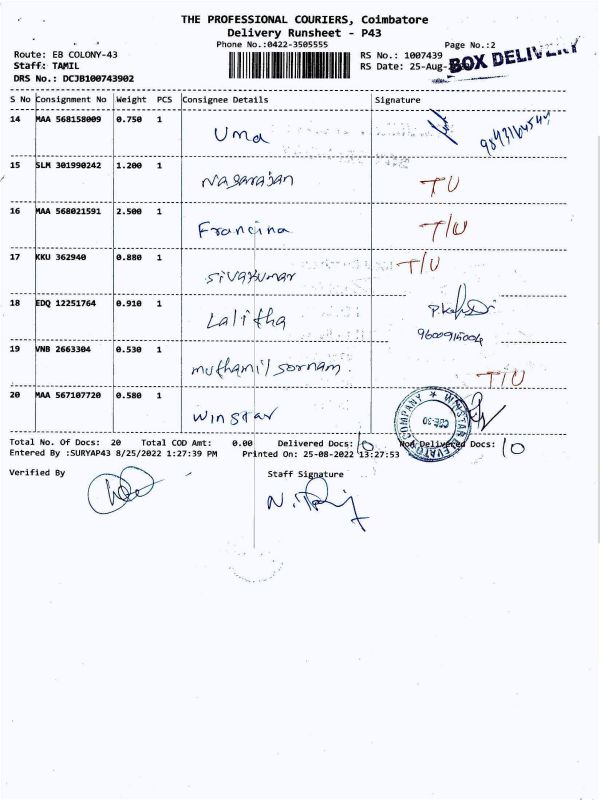 THE PROFESSIONAL COURIERS, Coimbatore
Delivery Runsheet - P43
Phone No.:0422-3505555
Page No.:2
Route: EB COLONY-43
RS No.: 1007439
Staff: TAMIL
RS Date: 25-Aug-
BOX DELIVERY
DRS No.: DCJB100743902
S No Consignment No Weight PCS Consignee Details Signature
14 MAA 568158009 0.750 1 Uma
15 SLM 301990242 1.200 1 Nagarajan TU
16 MAA 568021591 2.500 1 Francina T/U
17 KKU 362940 0.880 1 Sivakumar T/U
18 EDQ 12251764 0.910 1 Lalitha
19 VNB 2663304 0.530 1 muthamil sornam. T/U
20 MAA 567107720 0.580 1 Winstar
Total No. Of Docs: 20 Total COD Amt: 0.00 Delivered Docs: 10 Non Delivered Docs: 10
Entered By :SURYAP43 8/25/2022 1:27:39 PM Printed On: 25-08-2022 13:27:53
Verified By Staff Signature